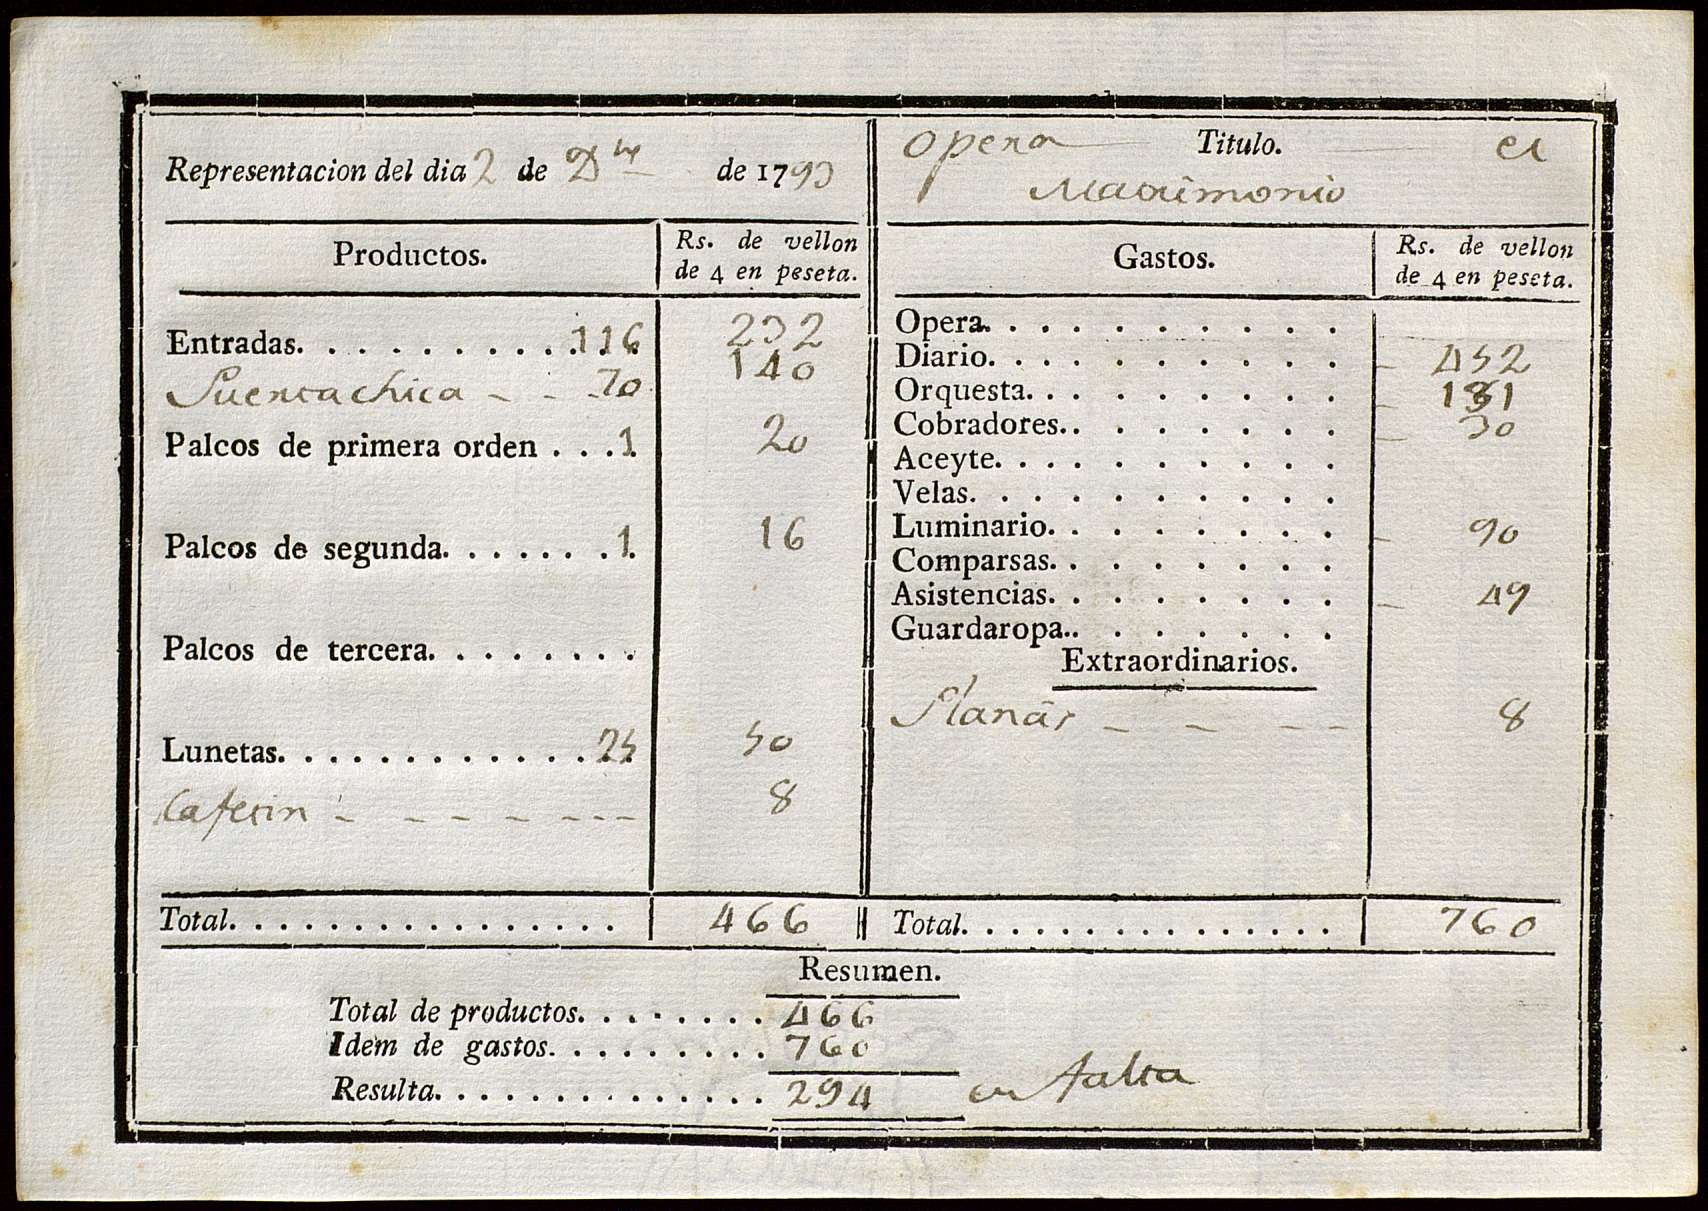 Representacion del dia 2 de Dre de 1793
Opera Titulo. el
Matrimonio
Productos.
Rs. de vellon
de 4 en peseta.
Entradas. 116 232
Puerta chica 70 140
Palcos de primera orden 1 20
Palcos de segunda. 1 16
Palcos de tercera.
Lunetas. 25 50
Cafetin 8
Total. 466
Gastos.
Rs. de vellon
de 4 en peseta.
Opera.
Diario. 452
Orquesta. 131
Cobradores. 30
Aceyte.
Velas.
Luminario. 90
Comparsas.
Asistencias. 49
Guardaropa.
Extraordinarios.
8
Total. 760
Resumen.
Total de productos. 466
Idem de gastos. 760
Resulta. 294 en falta